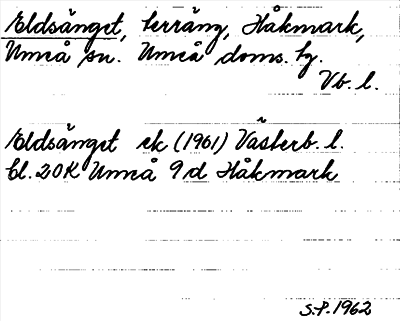 Eldsänget, terräng, Håkmark,
Umeå sn. Umeå doms. hg.
Vb. l.
Eldsänget ek (1961) Västerb. l.
bl. 20K Umeå 9 d Håkmark
S.P. 1962